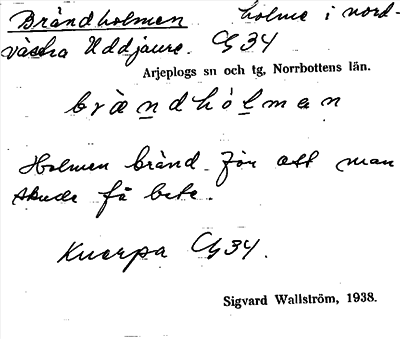 Brändholmen holme i nord-
västra Uddjaure. G 34
Arjeplogs sn och tg, Norrbottens län.
brændhólman
Holmen bränd för att man
skude få bete.
Kuorpa G 34.
Sigvard Wallström, 1938.